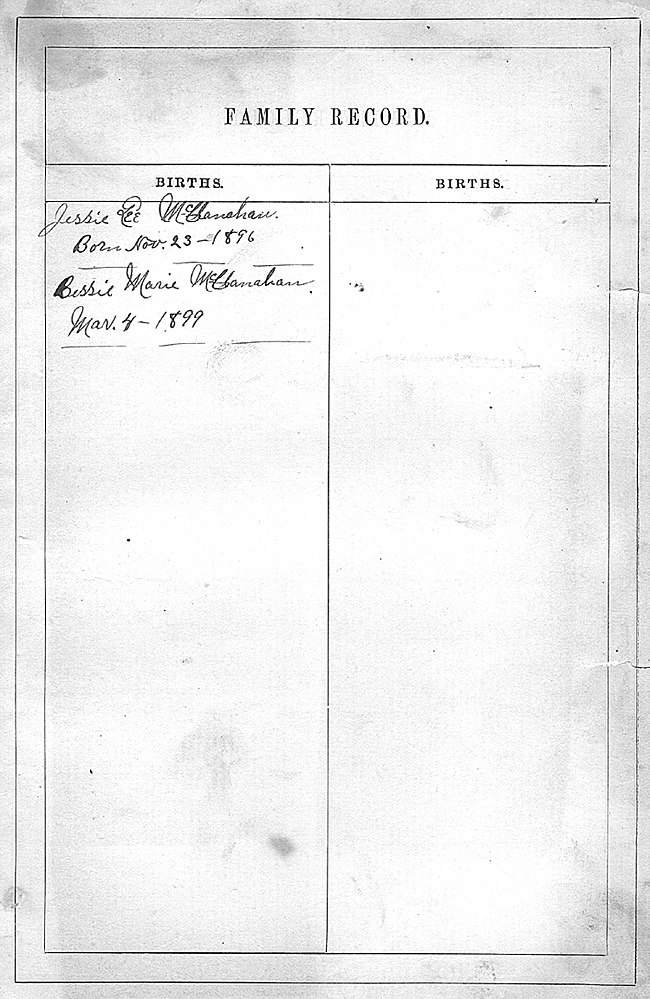 FAMILY RECORD.
BIRTHS.
BIRTHS.
Jessie Lee McClanahan.
Born Nov. 23 - 1896
Bessie Marie McClanahan.
Mar. 4 - 1899